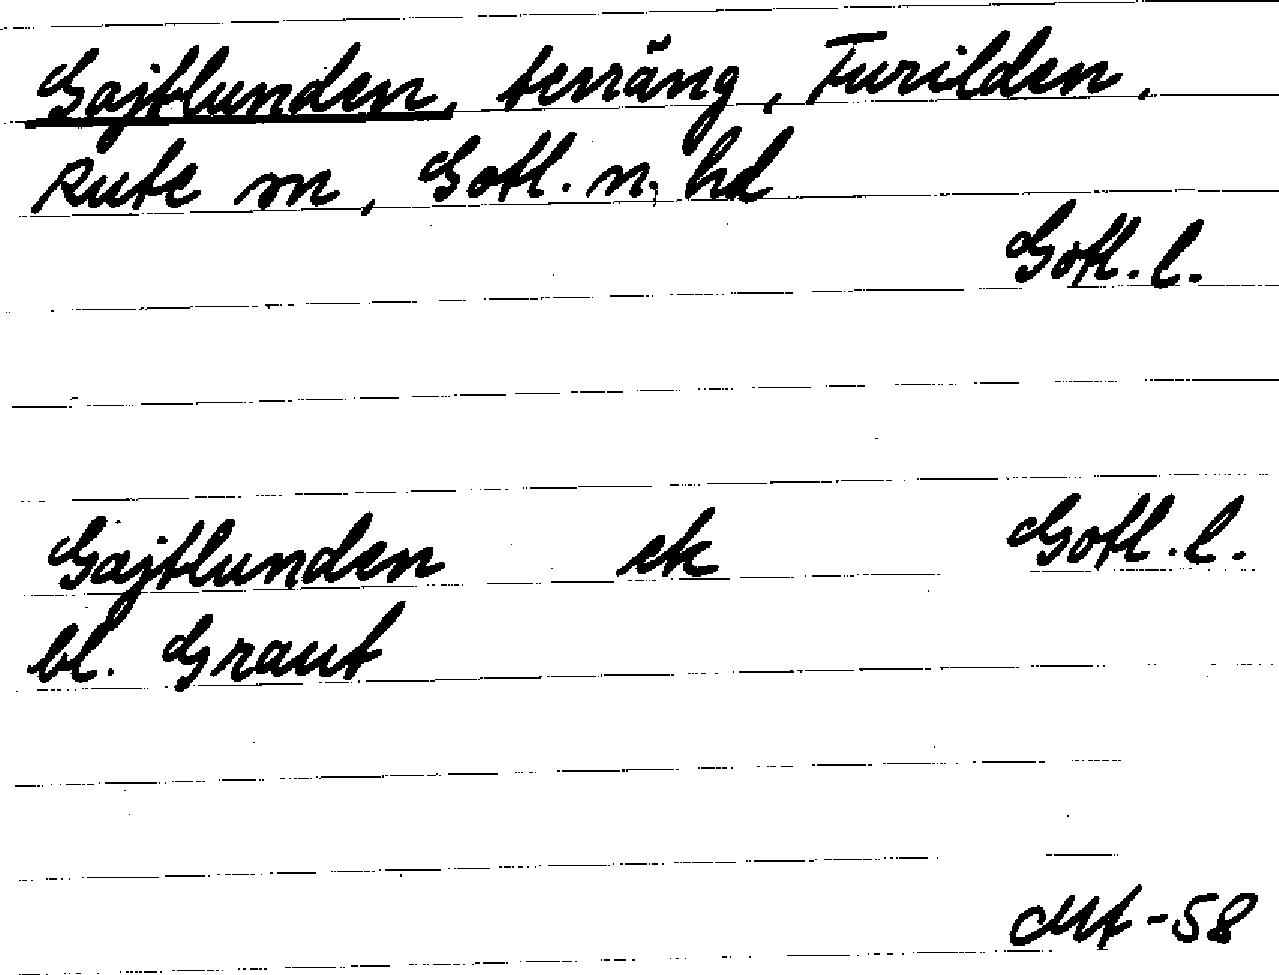 Gajtlunden, terräng, Furilden,
Rute sn, Gotl. n. hd
Gotl. l.
Gajtlunden ek Gotl. l.
bl. Graut
Mt -58